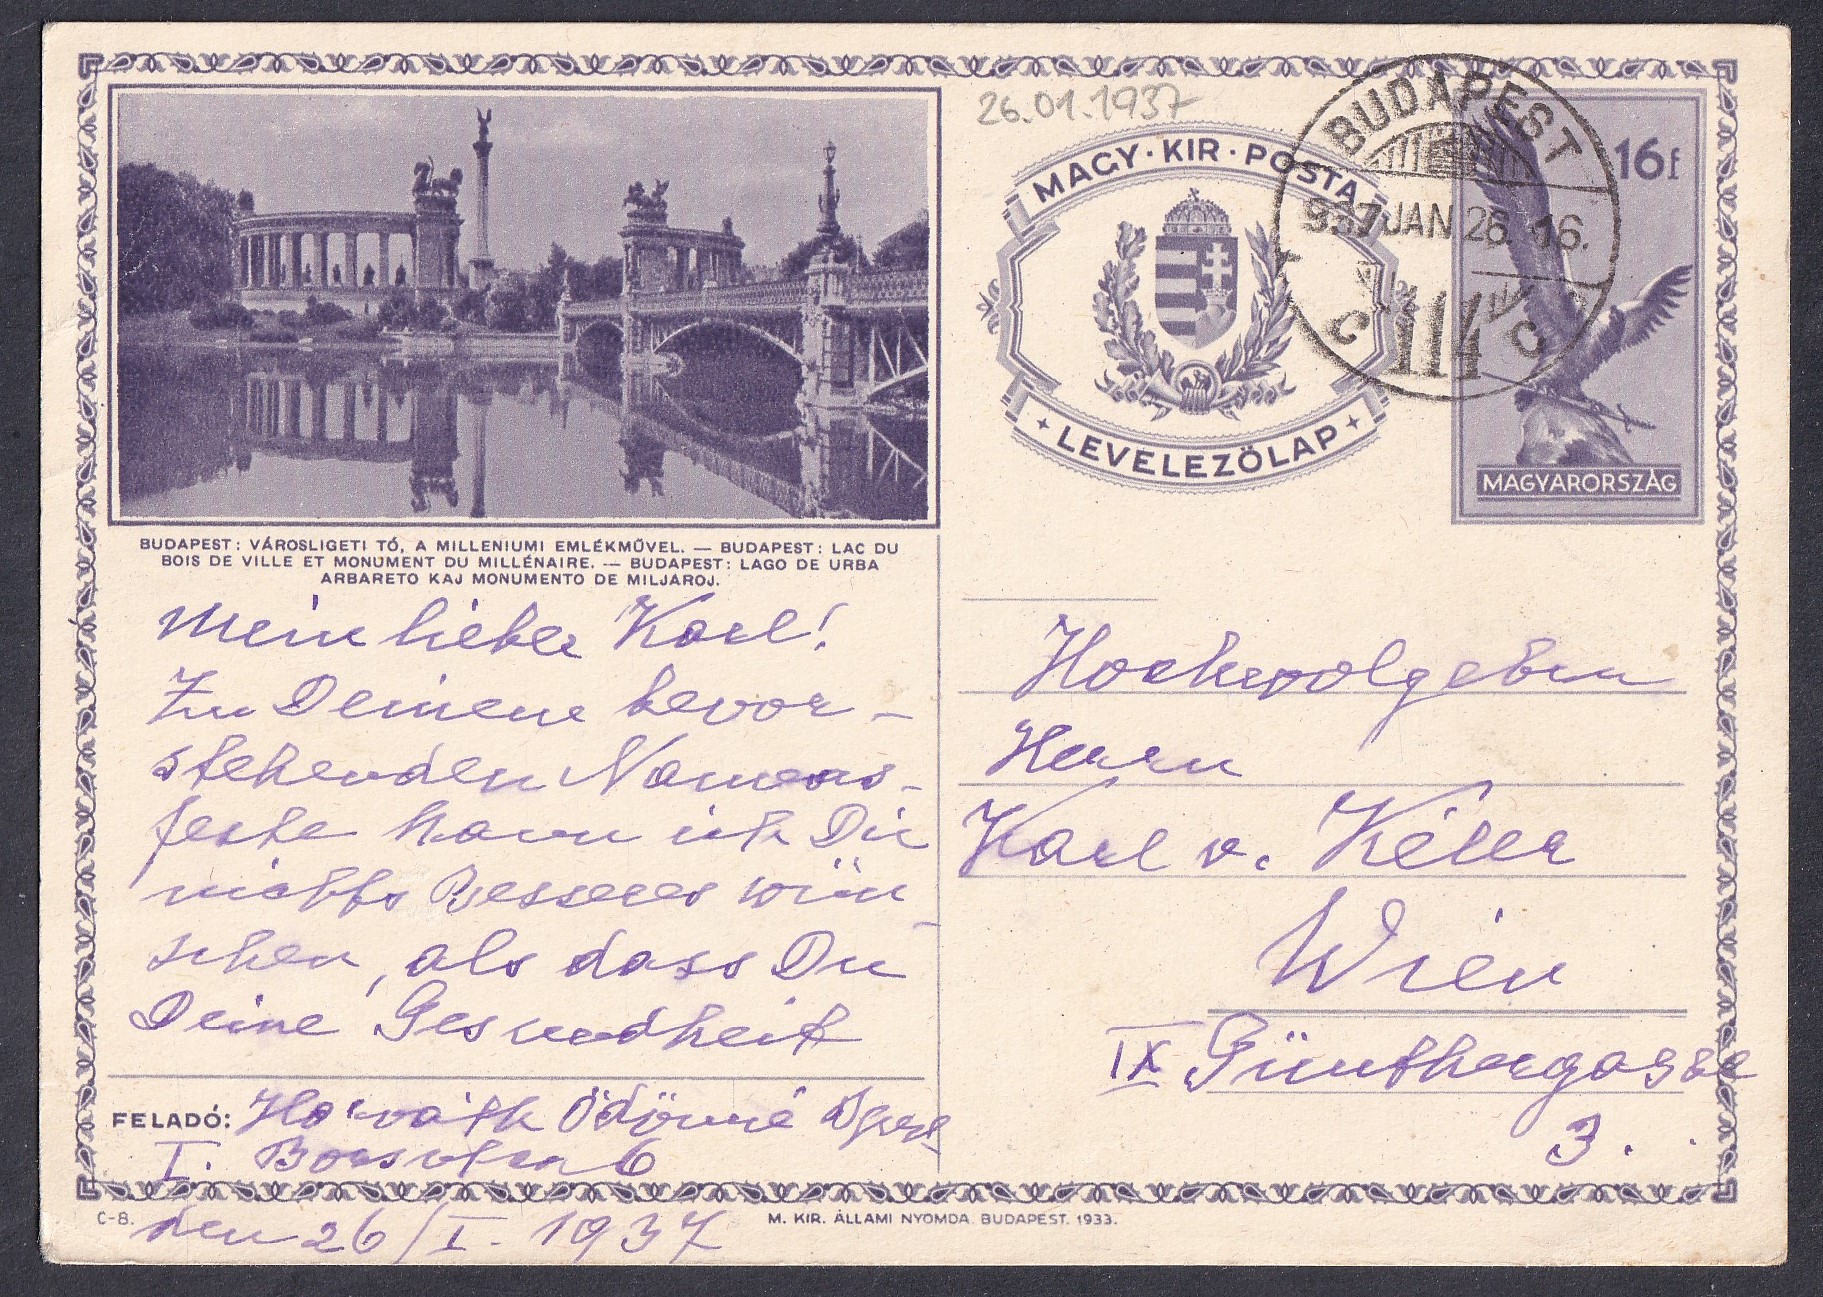 26.01.1937
MAGY · KIR · POSTA
LEVELEZŐLAP
BUDAPEST
937 JAN 26. 16.
C 114 C
16f
MAGYARORSZÁG
BUDAPEST: VÁROSLIGETI TÓ, A MILLENIUMI EMLÉKMŰVEL. — BUDAPEST: LAC DU
BOIS DE VILLE ET MONUMENT DU MILLÉNAIRE. — BUDAPEST: LAGO DE URBA
ARBARETO KAJ MONUMENTO DE MILJAROJ.
Mein lieber Karl!
Zu Deinem bevor-
stehenden Namens-
feste kann ich Dir
nichts Besseres wün-
schen, als dass Du
Deine Gesundheit
FELADÓ: Horváth Ödönné
I. 6
den 26/I. 1937
Hochwolgeben
Herrn
Karl v. Kéler
Wien
IX Günthergasse
3.
C-8.
M. KIR. ÁLLAMI NYOMDA. BUDAPEST. 1933.